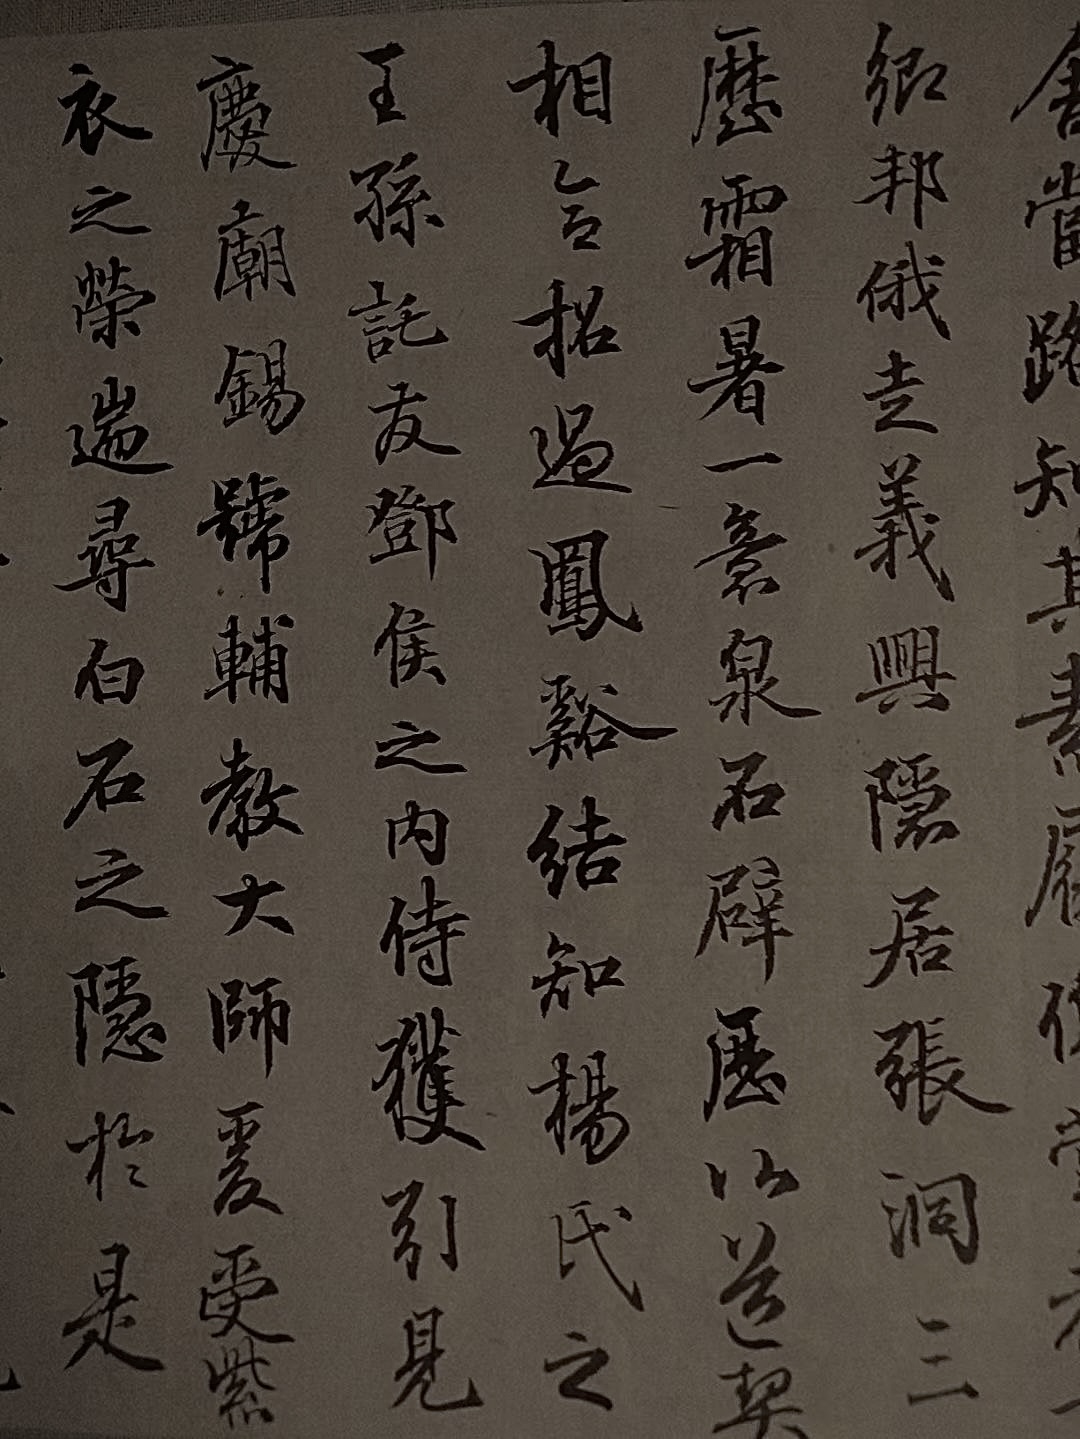 當路知其素履
鄉邦俄走義興隱居張洞三
歷霜暑一意泉石辟歷以道契
相合招過鳳谿結知楊氏之
王孫託友鄧侯之內侍獲引見
慶廟錫號輔教大師爰受紫
衣之榮遄尋白石之隱於是